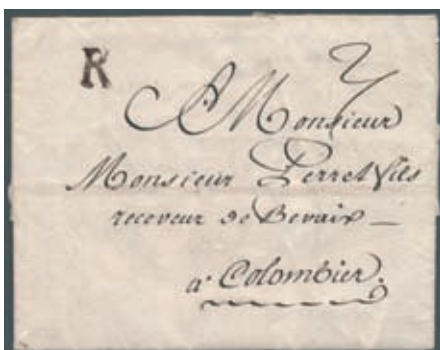 R
2
A Monsieur
Monsieur Perret fils
receveur de Bevaix
à Colombier.